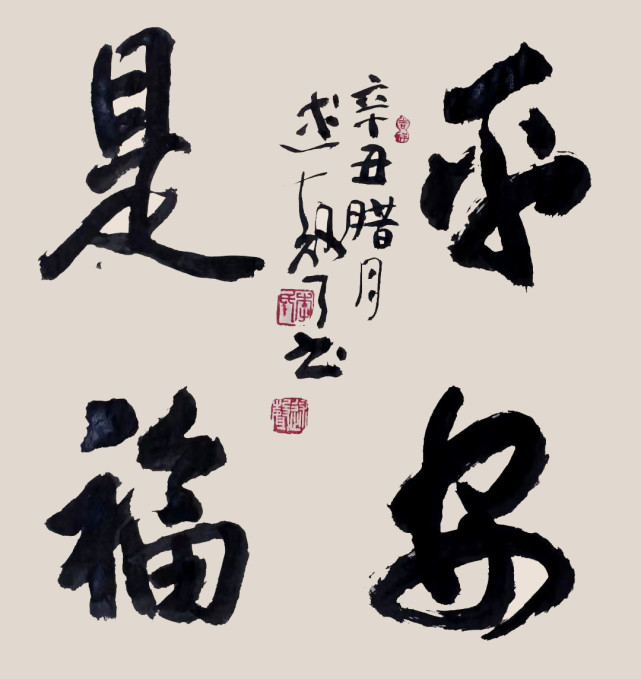 平安
是福
辛丑腊月
书